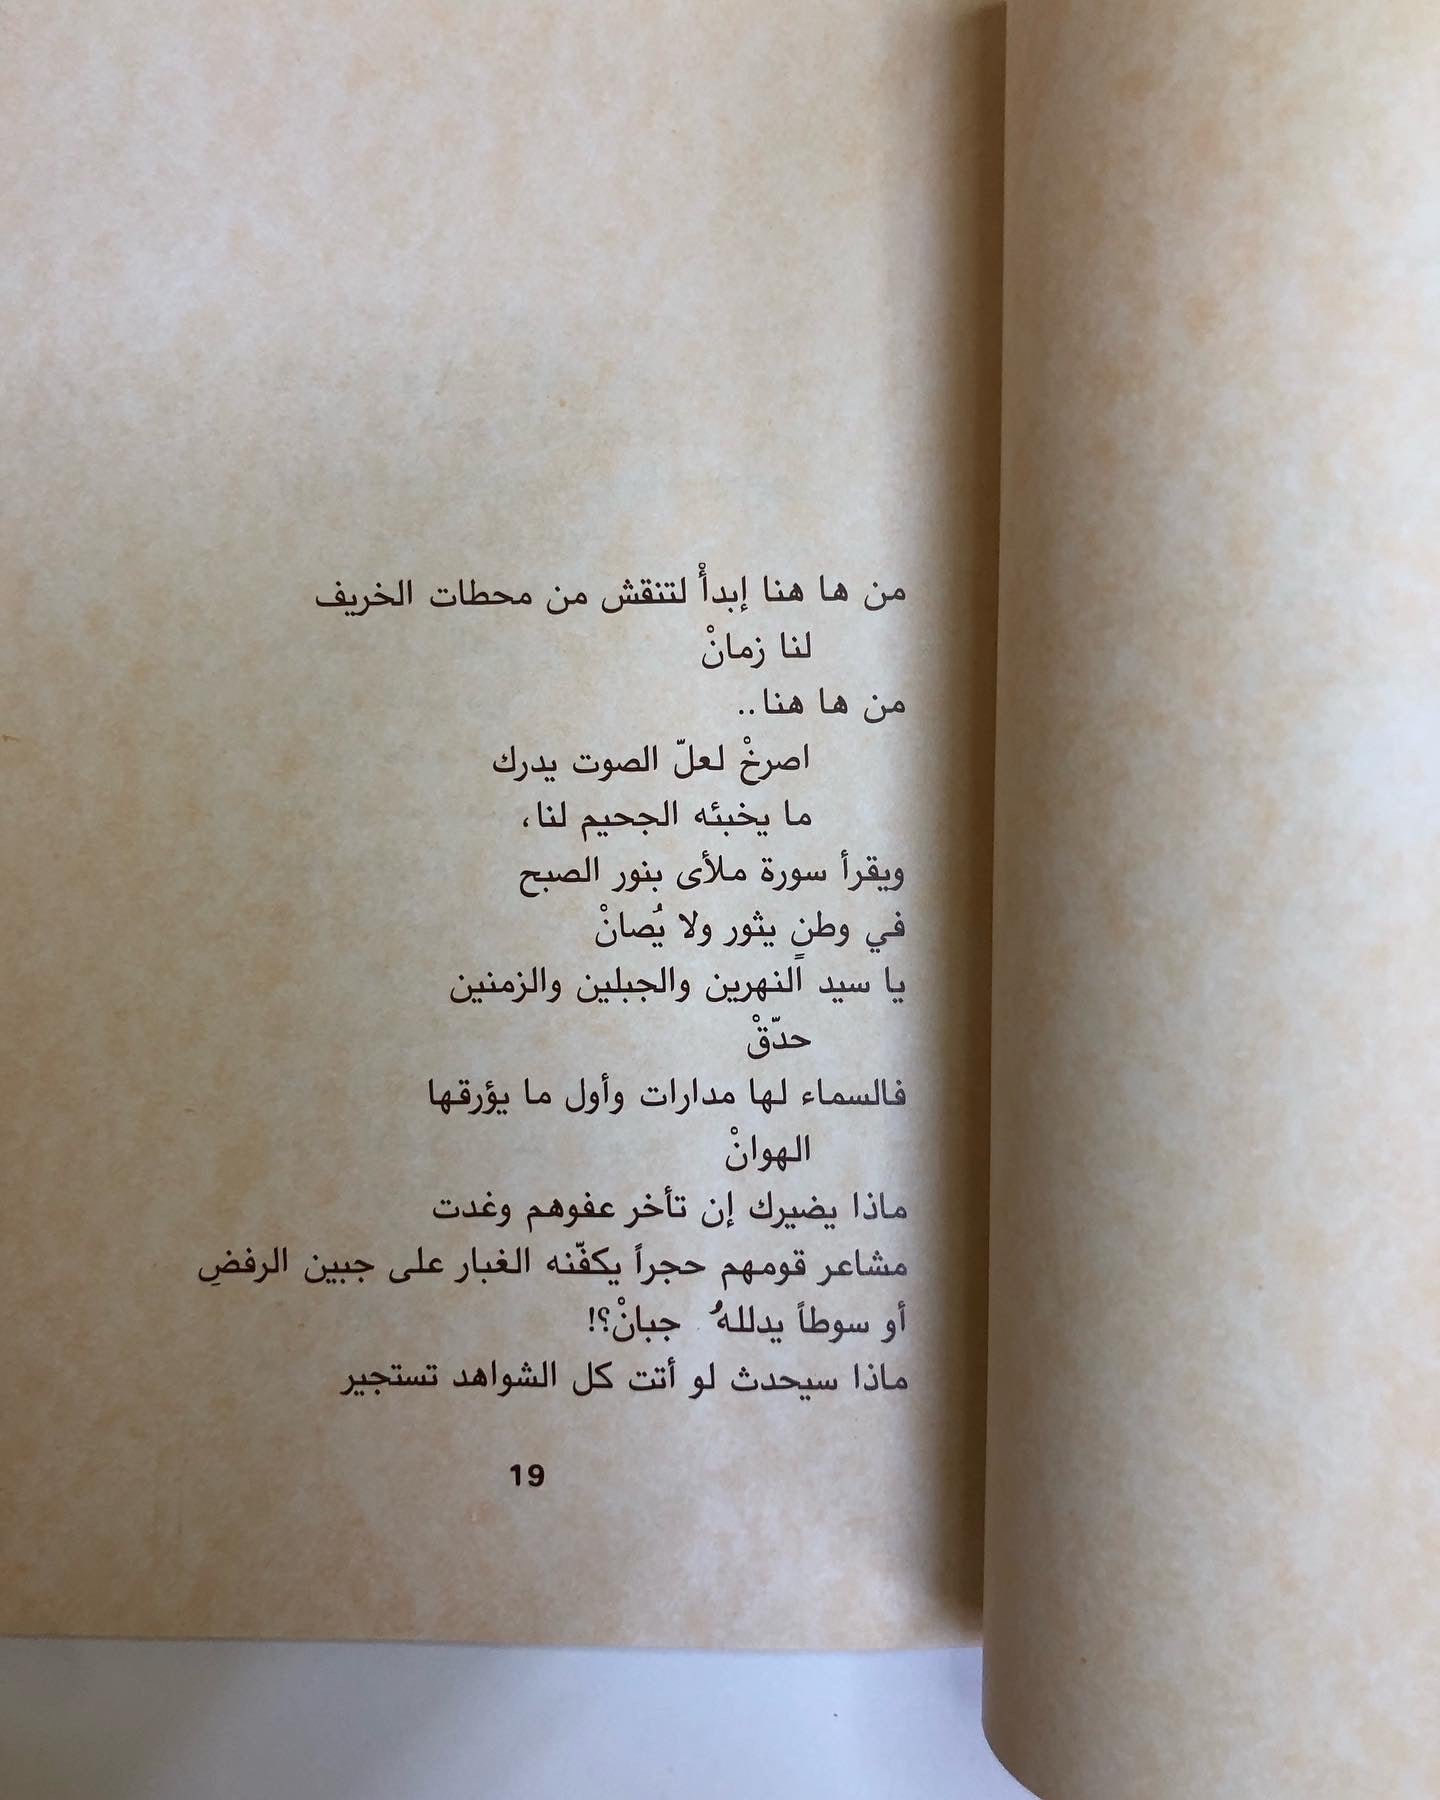 من ها هنا إبدأْ لتنقش من محطات الخريف
لنا زمانْ
من ها هنا..
اصرخْ لعلّ الصوت يدرك
ما يخبئه الجحيم لنا،
ويقرأ سورة ملأى بنور الصبح
في وطنٍ يثور ولا يُصانْ
يا سيد النهرين والجبلين والزمنين
حدّقْ
فالسماء لها مدارات وأول ما يؤرقها
الهوانْ
ماذا يضيرك إن تأخر عفوهم وغدت
مشاعر قومهم حجراً يكفّنه الغبار على جبين الرفضِ
أو سوطاً يدللهُ جبانْ؟!
ماذا سيحدث لو أتت كل الشواهد تستجير
19